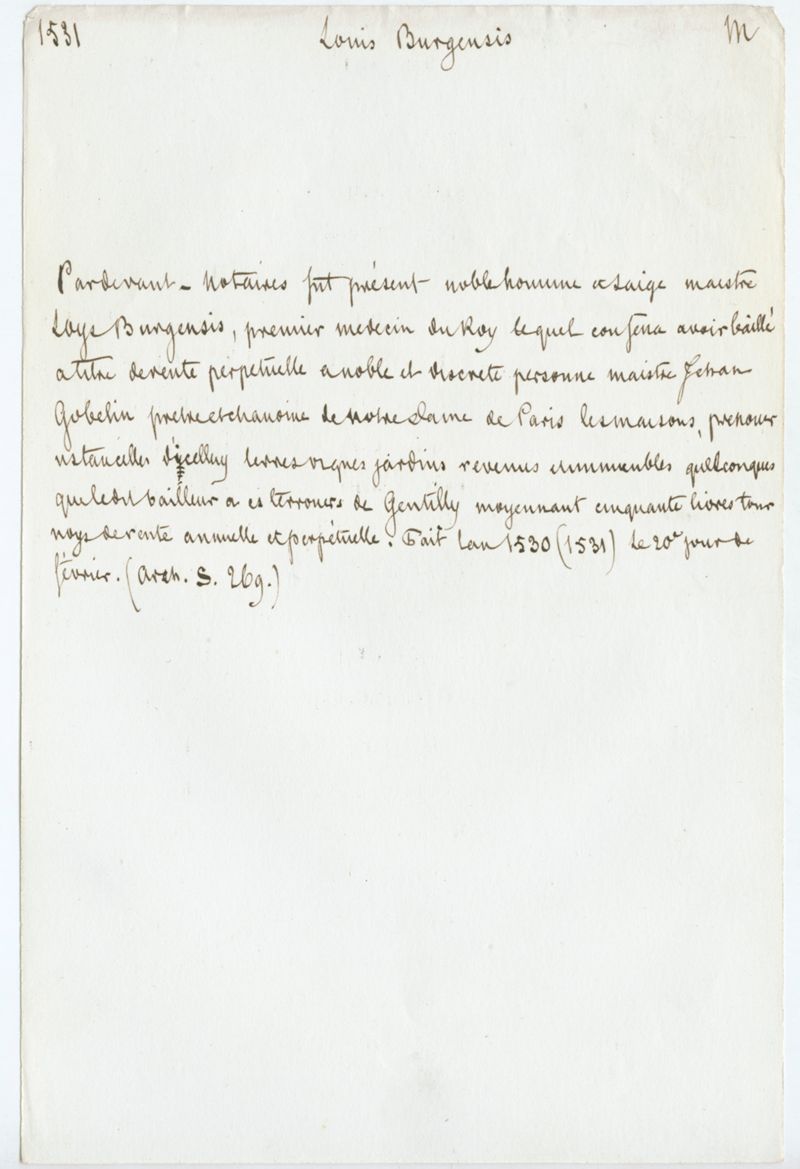 1531 Louis Burgensis M
Pardevant - Notaires fut présent noble homme et saige maestre
Loys Burgensis, premier medecin du Roy lequel confessa avoir baillé
a titre de rente perpetuelle a noble et discrete personne maistre Jehan
Gobelin pretre et chanoine de notre dame de Paris les maisons,
ustancilles d'icelluy terres vignes jardins revenus et immeubles quelconques
que ledit bailleur a es terrouers de Gentilly moyennant cinquante livres tour
noys de rente annuelle et perpétuelle. Fait lan 1530 (1531) le 20e jour de
février. (Arch. S. 269.)